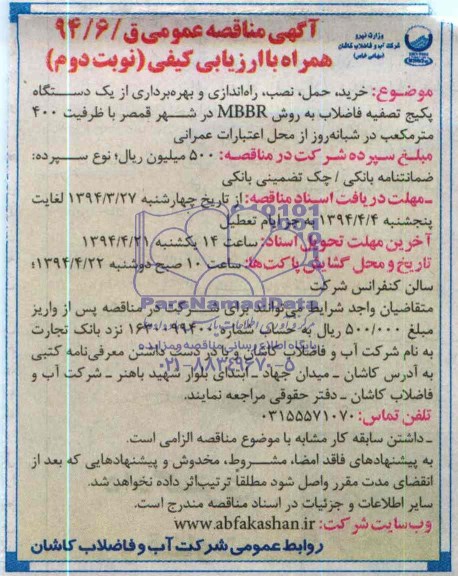 وزارت نیرو
شرکت آب و فاضلاب کاشان
(سهامی خاص)
آگهی مناقصه عمومی ق/۹۴/۶
همراه با ارزیابی کیفی (نوبت دوم)
موضوع: خرید، حمل، نصب، راه‌اندازی و بهره‌برداری از یک دستگاه
پکیج تصفیه فاضلاب به روش MBBR در شهر قمصر با ظرفیت ۴۰۰
مترمکعب در شبانه‌روز از محل اعتبارات عمرانی
مبلغ سپرده شرکت در مناقصه: ۵۰۰ میلیون ریال؛ نوع سپرده:
ضمانتنامه بانکی / چک تضمینی بانکی
ـ مهلت دریافت اسناد مناقصه: از تاریخ چهارشنبه ۱۳۹۴/۳/۲۷ لغایت
پنجشنبه ۱۳۹۴/۴/۴ به جز ایام تعطیل
آخرین مهلت تحویل اسناد: ساعت ۱۴ یکشنبه ۱۳۹۴/۴/۲۱
تاریخ و محل گشایش پاکت‌ها: ساعت ۱۰ صبح دوشنبه ۱۳۹۴/۴/۲۲؛
سالن کنفرانس شرکت
متقاضیان واجد شرایط می‌توانند برای شرکت در مناقصه پس از واریز
مبلغ ۵۰۰/۰۰۰ ریال به حساب شماره نزد بانک تجارت
به نام شرکت آب و فاضلاب کاشان و با در دست داشتن معرفی‌نامه کتبی
به آدرس کاشان ـ میدان جهاد ـ ابتدای بلوار شهید باهنر ـ شرکت آب و
فاضلاب کاشان ـ دفتر حقوقی مراجعه نمایند.
تلفن تماس: ۰۳۱۵۵۵۷۱۰۷۰
ـ داشتن سابقه کار مشابه با موضوع مناقصه الزامی است.
به پیشنهادهای فاقد امضا، مشروط، مخدوش و پیشنهادهایی که بعد از
انقضای مدت مقرر واصل شود مطلقا ترتیب‌اثر داده نخواهد شد.
سایر اطلاعات و جزئیات در اسناد مناقصه مندرج است.
وب‌سایت شرکت: www.abfakashan.ir
روابط عمومی شرکت آب و فاضلاب کاشان
ParsNamadData
پایگاه اطلاع رسانی مناقصه و مزایده
۰۲۱-۸۸۳۴۹۶۷۰-۵